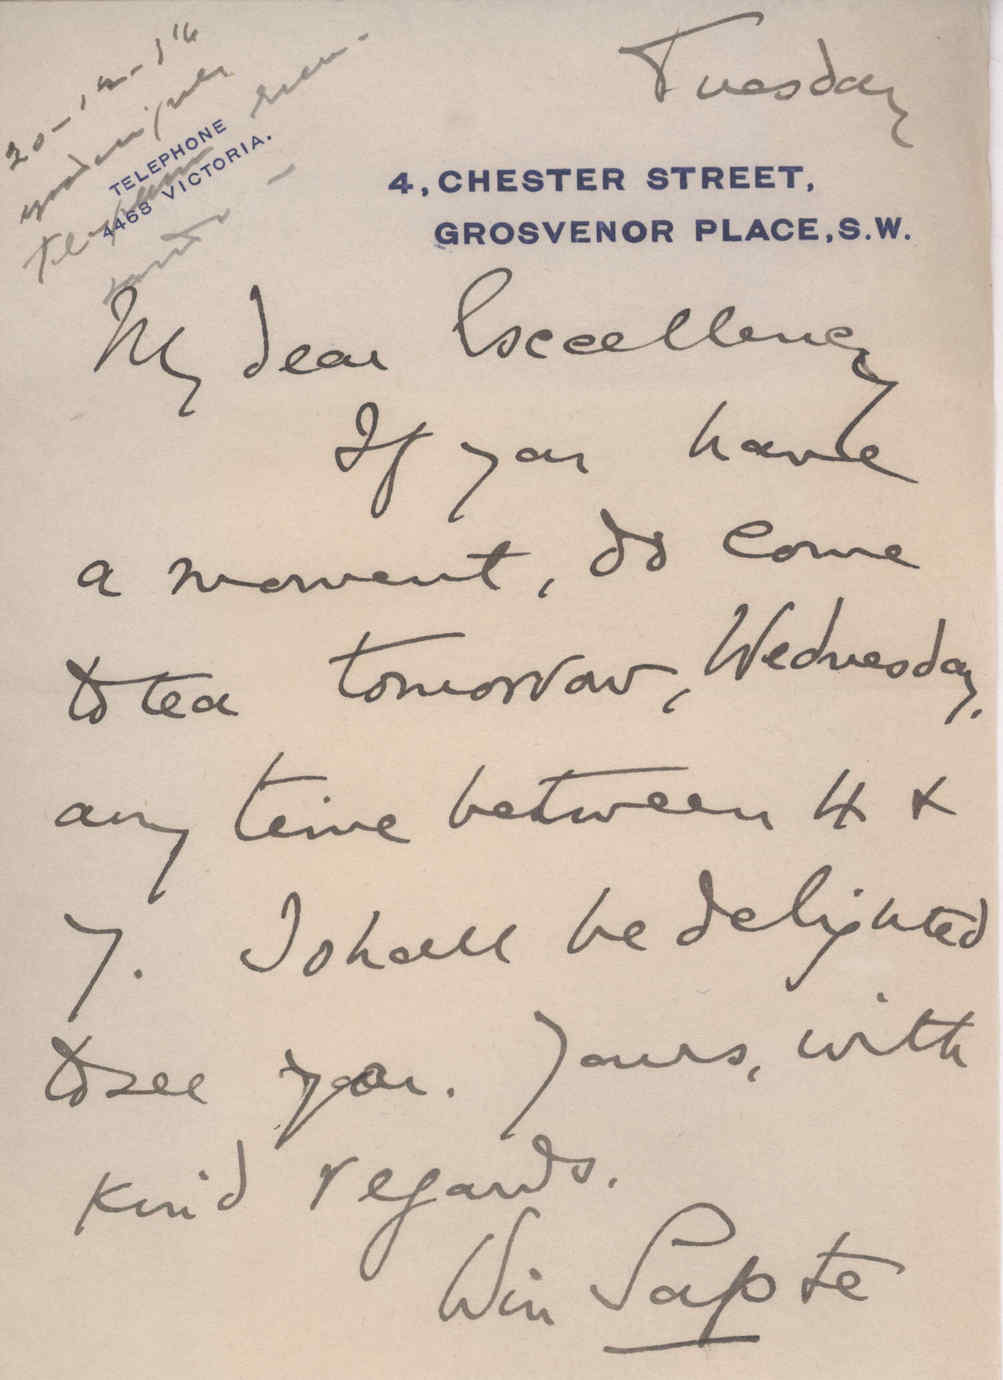 20-12-16
TELEPHONE
4468 VICTORIA.
Tuesday
4, CHESTER STREET,
GROSVENOR PLACE, S.W.
My dear Excellency
If you have
a moment, do come
to tea tomorrow, Wednesday,
any time between 4 &
7. I shall be delighted
to see you. Yours, with
kind regards.
Win Sapte